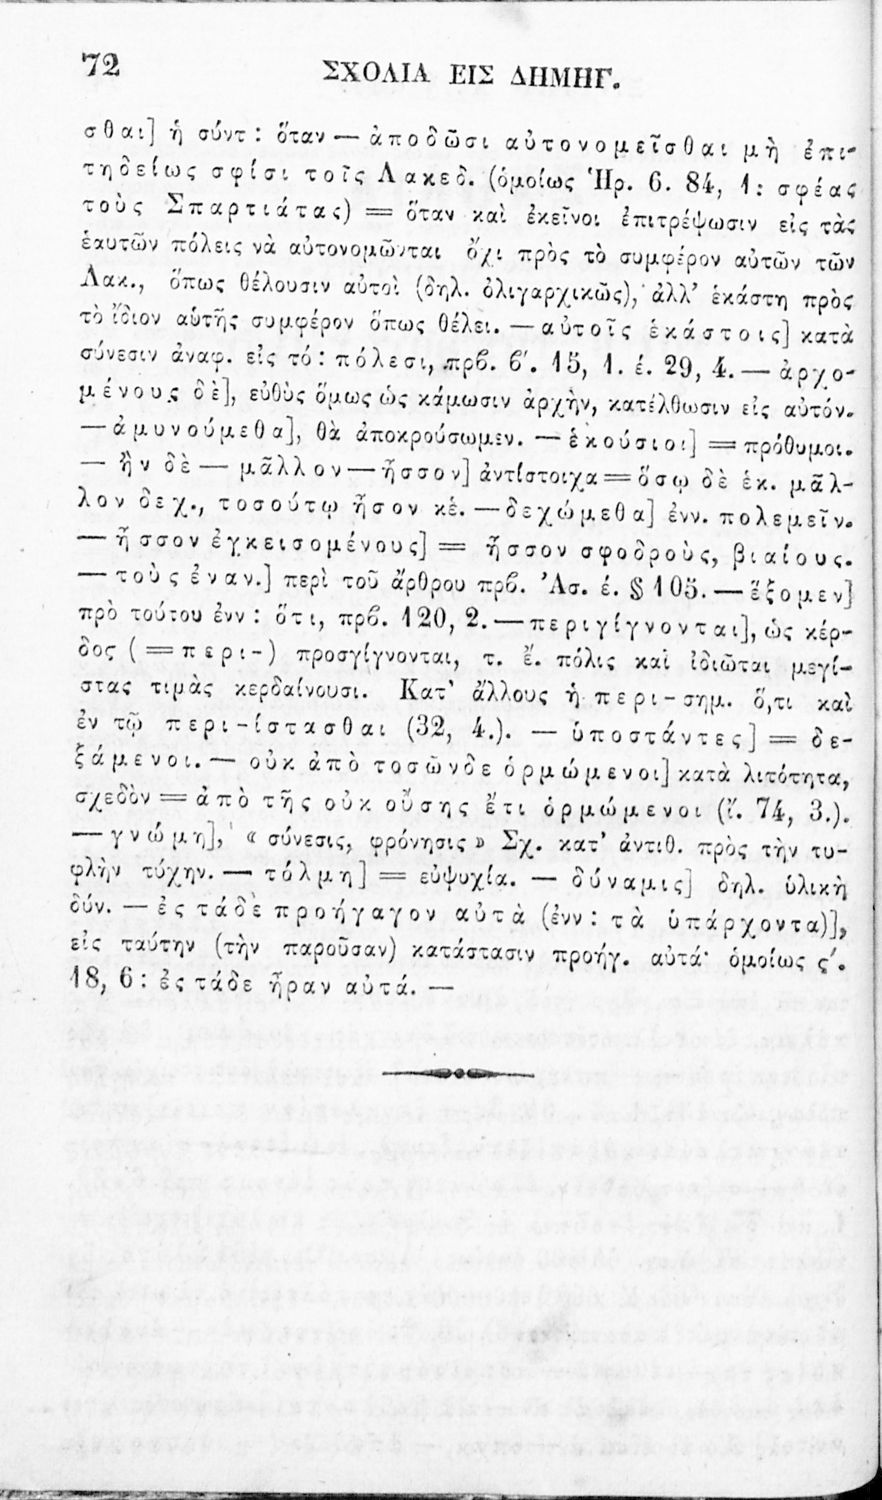 72
ΣΧΟΛΙΑ ΕΙΣ ΔΗΜΗΓ.
σθαι] ἡ σύντ: ὅταν — ἀποδῶσι αὐτονομεῖσθαι μὴ ἐπι-
τηδείως σφίσι τοῖς Λακεδ. (ὁμοίως Ἡρ. 6. 84, 1: σφέας
τοὺς Σπαρτιάτας) = ὅταν καὶ ἐκεῖνοι ἐπιτρέψωσιν εἰς τὰς
ἑαυτῶν πόλεις νὰ αὐτονομῶνται ὄχι πρὸς τὸ συμφέρον αὐτῶν τῶν
Λακ., ὅπως θέλουσιν αὐτοὶ (δηλ. ὀλιγαρχικῶς), ἀλλ’ ἑκάστη πρὸς
τὸ ἴδιον αὑτῆς συμφέρον ὅπως θέλει. — αὐτοῖς ἑκάστοις] κατὰ
σύνεσιν ἀναφ. εἰς τό: πόλεσι, πρβ. β′. 15, 1. έ. 29, 4. — ἀρχο-
μένους δὲ], εὐθὺς ὅμως ὡς κάμωσιν ἀρχὴν, κατέλθωσιν εἰς αὐτόν.
— ἀμυνούμεθα], θὰ ἀποκρούσωμεν. — ἑκούσιοι] = πρόθυμοι.
— ἢν δὲ — μᾶλλον — ἧσσον] ἀντίστοιχα = ὅσῳ δὲ ἑκ. μᾶλ-
λον δεχ., τοσούτῳ ἧσον κέ. — δεχώμεθα] ἐνν. πολεμεῖν.
— ἧσσον ἐγκεισομένους] = ἧσσον σφοδροὺς, βιαίους.
— τοὺς ἐναν.] περὶ τοῦ ἄρθρου πρβ. Ἀσ. έ. § 105. — ἕξομεν]
πρὸ τούτου ἐνν: ὅτι, πρβ. 120, 2. — περιγίγνονται], ὡς κέρ-
δος (= περι-) προσγίγνονται, τ. ἔ. πόλις καὶ ἰδιῶται μεγί-
στας τιμὰς κερδαίνουσι. Κατ ἄλλους ἡ περι-σημ. ὅ,τι καὶ
ἐν τῷ περι-ίστασθαι (32, 4.). — ὑποστάντες] = δε-
ξάμενοι. — οὐκ ἀπὸ τοσῶνδε ὁρμώμενοι] κατὰ λιτότητα,
σχεδὸν = ἀπὸ τῆς οὐκ οὔσης ἔτι ὁρμώμενοι (ἴ. 74, 3.).
— γνώμη], « σύνεσις, φρόνησις » Σχ. κατ’ ἀντιθ. πρὸς τὴν τυ-
φλὴν τύχην. — τόλμη] = εὐψυχία. — δύναμις] δηλ. ὑλικὴ
δύν. — ἐς τάδε προήγαγον αὐτὰ (ἐνν: τὰ ὑπάρχοντα)],
εἰς ταύτην (τὴν παροῦσαν) κατάστασιν προήγ. αὐτά· ὁμοίως ς′.
18, 6: ἐς τάδε ἦραν αὐτά. —